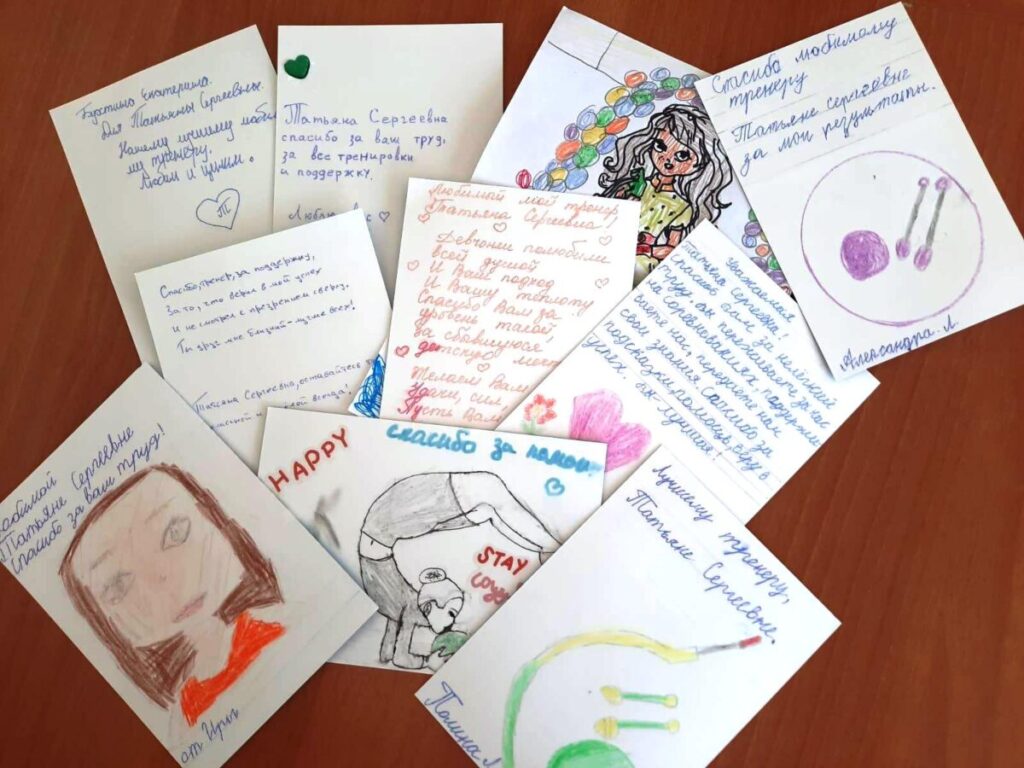 Бустино Екатерина.
Для Татьяны Сергеевных.
Нашему лучшему
му тренеру.
Любим и ценим.
Т
Татьяна Сергеевна
спасибо за ваш труд,
за все тренировки
и поддержку.
Люблю вас
Спасибо любимому
тренеру
Татьяне Сергеевне
за мои результаты.
Александра Л.
Любимой мой тренер,
Татьяна Сергеевна!
Девчонки полюбили
всей душой
И Ваш подход
И Вашу теплоту!
Спасибо Вам за
уровень такой
За сбывшуюся
детскую меч
Желаем Вам
Удачи, сил
Пусть Вам
Спасибо, тренер, за поддержку,
За то, что верил в мой успех
И не смотрел с презрением сверху,
Ты друг мне близкий - лучше всех!
Татьяна Сергеевна, оставайтесь
всегда!
Уважаемая
Татьяна Сергеевна!
Спасибо Вам за нелёгкий
труд, вы переживаете за нас
на соревнованиях, поддержи
ваете нас, передаёте нам
свои знания. Спасибо за
подсказки, помощь, веру в
успех. Вы лучшая!
Любимой
Татьяне Сергеевне
Спасибо за ваш труд!
от Иры
HAPPY
спасибо за помощь
STAY
Лучшему тренеру,
Татьяне Сергеевне.
Полина Л